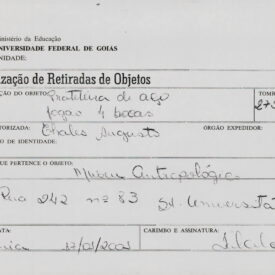 inistério da Educação
NIVERSIDADE FEDERAL DE GOIÁS
NIDADE:
ização de Retiradas de Objetos
ÇÃO DO OBJETO: Prateleira de aço TOMB
fogão 4 bocas 275
TORIZADA: Thales Augusto ÓRGÃO EXPEDIDOR:
O DE IDENTIDADE:
QUE PERTENCE O OBJETO: Museu Antropológico
Rua 242 nº 83 St. Universitá
ATA: CARIMBO E ASSINATURA: